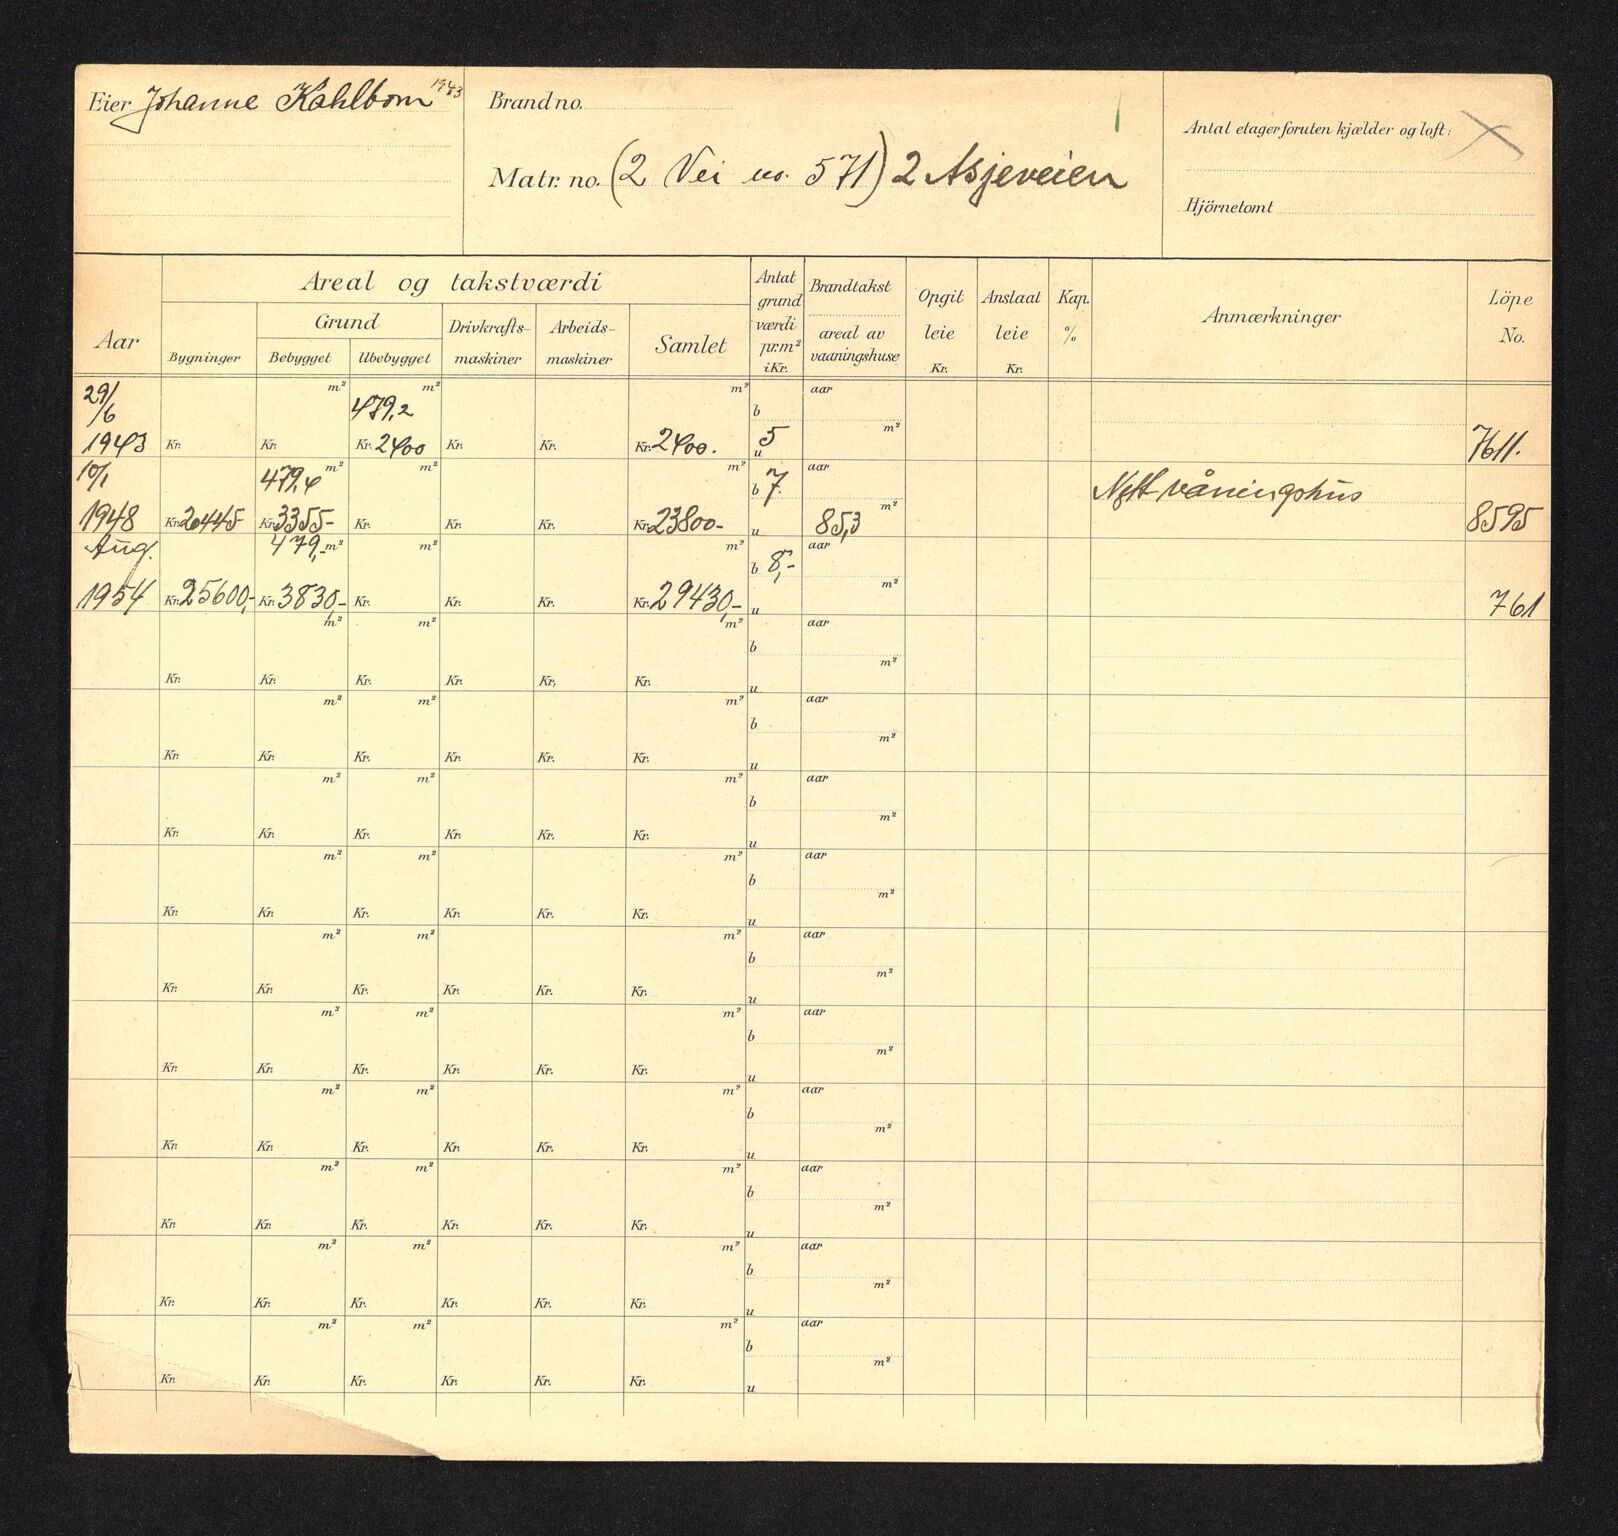 Eier Johanne Kahlbom 1943
Brand no.
Matr. no. (2 Vei no. 571) 2 Asjeveien
Antal etager foruten kjælder og loft:
Hjörnetomt
Aar
Areal og takstværdi
Bygninger
Grund
Bebygget
Ubebygget
Drivkrafts-
maskiner
Arbeids-
maskiner
Samlet
Antat
grund
værdi
pr. m²
i Kr.
Brandtakst
areal av
vaaningshuse
Opgit
leie
Kr.
Anslaat
leie
Kr.
Kap.
%
Anmærkninger
Löpe
No.
29/6 m² 479,2 m² m² b aar
1943 Kr. Kr. Kr. 2400 Kr. Kr. Kr. 2400. 5 u m² 7611.
10/1 479,4 m² m² m² b 7. aar Nytt våningshus
1948 Kr. 20445 Kr. 3355- Kr. Kr. Kr. Kr. 23800- u 85,3 m² 8595
Aug. 479,- m² m² m² b 8,- aar
1954 Kr. 25600,- Kr. 3830,- Kr. Kr. Kr. Kr. 29430,- u m² 761
m² m² m² b aar
Kr. Kr. Kr. Kr. Kr. Kr. u m²
m² m² m² b aar
Kr. Kr. Kr. Kr. Kr. Kr. u m²
m² m² m² b aar
Kr. Kr. Kr. Kr. Kr. Kr. u m²
m² m² m² b aar
Kr. Kr. Kr. Kr. Kr. Kr. u m²
m² m² m² b aar
Kr. Kr. Kr. Kr. Kr. Kr. u m²
m² m² m² b aar
Kr. Kr. Kr. Kr. Kr. Kr. u m²
m² m² m² b aar
Kr. Kr. Kr. Kr. Kr. Kr. u m²
m² m² m² b aar
Kr. Kr. Kr. Kr. Kr. Kr. u m²
m² m² m² b aar
Kr. Kr. Kr. Kr. Kr. Kr. u m²
m² m² m² b aar
Kr. Kr. Kr. Kr. Kr. Kr. u m²